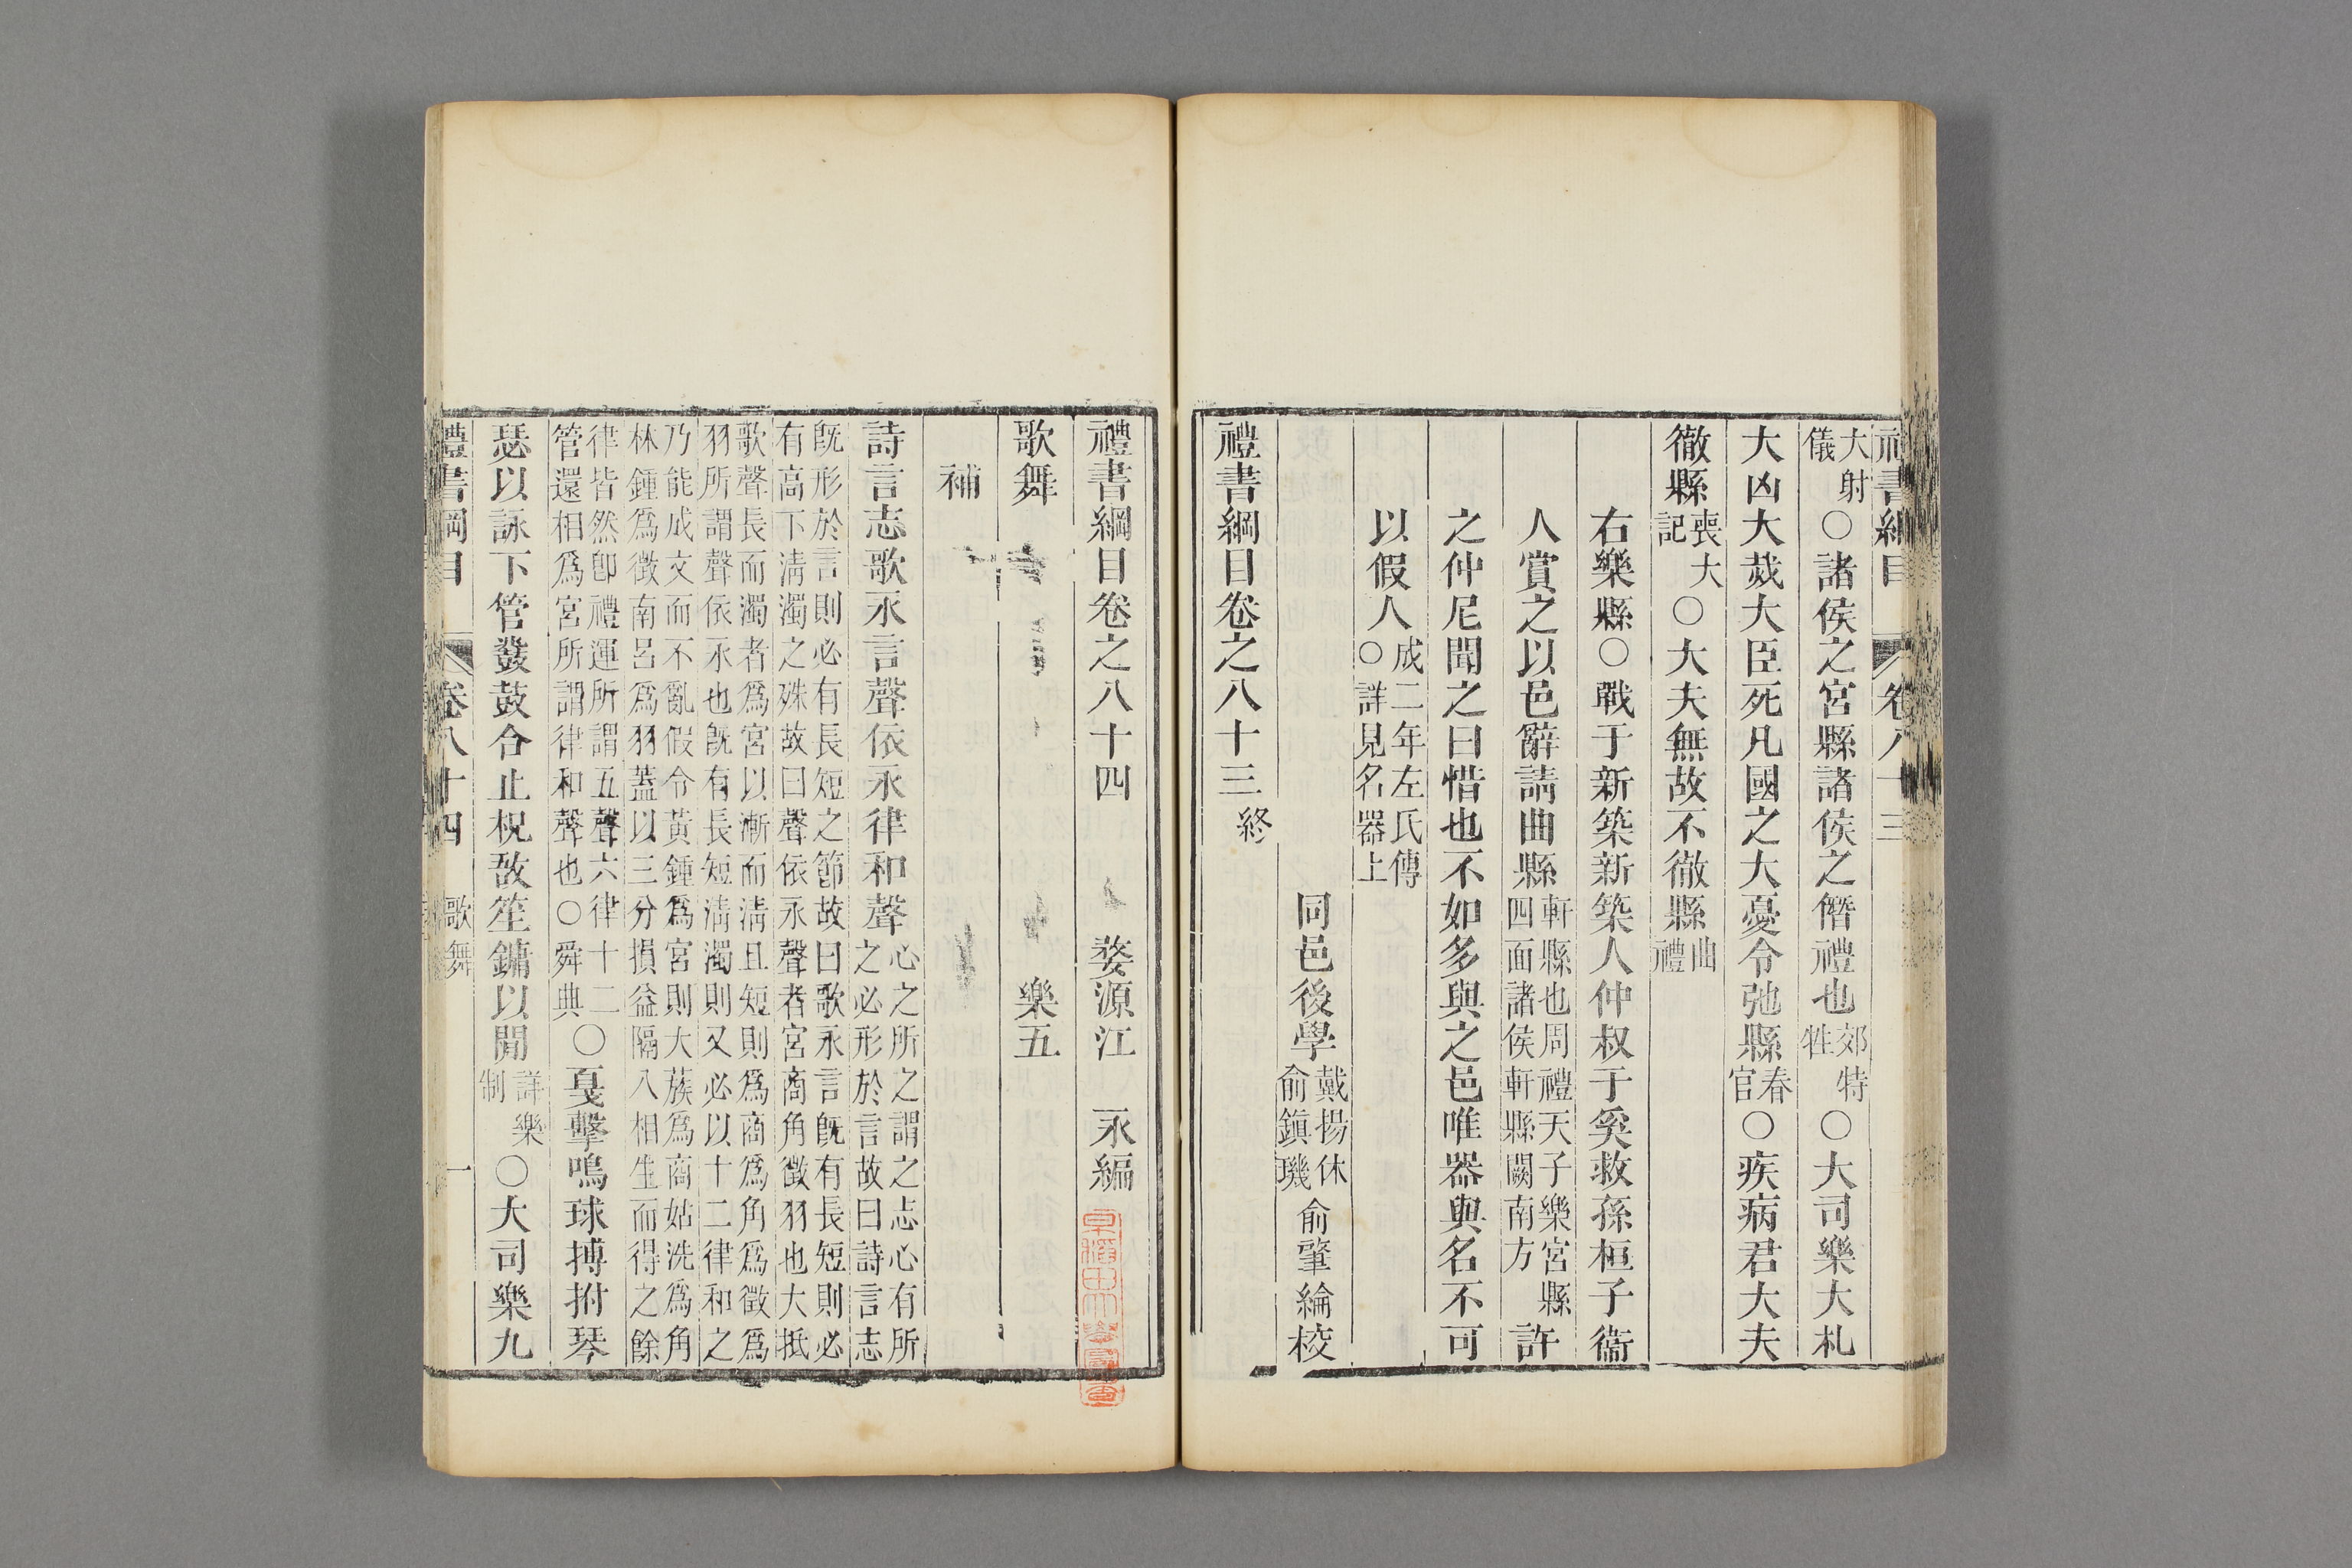 禮書綱目 卷八十三
大射儀○諸侯之宮縣諸侯之僭禮也郊特牲○大司樂大札
大凶大烖大臣死凡國之大憂令弛縣春官○疾病君大夫
徹縣喪大記○大夫無故不徹縣曲禮
右樂縣○戰于新築新築人仲叔于奚救孫桓子衞
人賞之以邑辭請曲縣軒縣也周禮天子樂宮縣四面諸侯軒縣闕南方許
之仲尼聞之曰惜也不如多與之邑唯器與名不可
以假人成二年左氏傳○詳見名器上
同邑後學戴揚休俞鎮璣俞肇綸校
禮書綱目卷之八十三終
禮書綱目卷之八十四 婺源江 永編
歌舞 樂五
補
詩言志歌永言聲依永律和聲心之所之謂之志心有所之必形於言故曰詩言志
旣形於言則必有長短之節故曰歌永言旣有長短則必有高下淸濁之殊故曰聲依永聲者宮商角徵羽也大抵
歌聲長而濁者爲宮以漸而淸且短則爲商爲角爲徵爲羽所謂聲依永也旣有長短淸濁則又必以十二律和之
乃能成文而不亂假令黃鍾爲宮則大蔟爲商姑洗爲角林鍾爲徵南呂爲羽蓋以三分損益隔八相生而得之餘
律皆然卽禮運所謂五聲六律十二管還相爲宮所謂律和聲也○舜典○戛擊鳴球搏拊琴
瑟以詠下管鼗鼓合止柷敔笙鏞以閒詳樂制○大司樂九
禮書綱目 卷八十四 歌舞 一
早稻田大學圖書